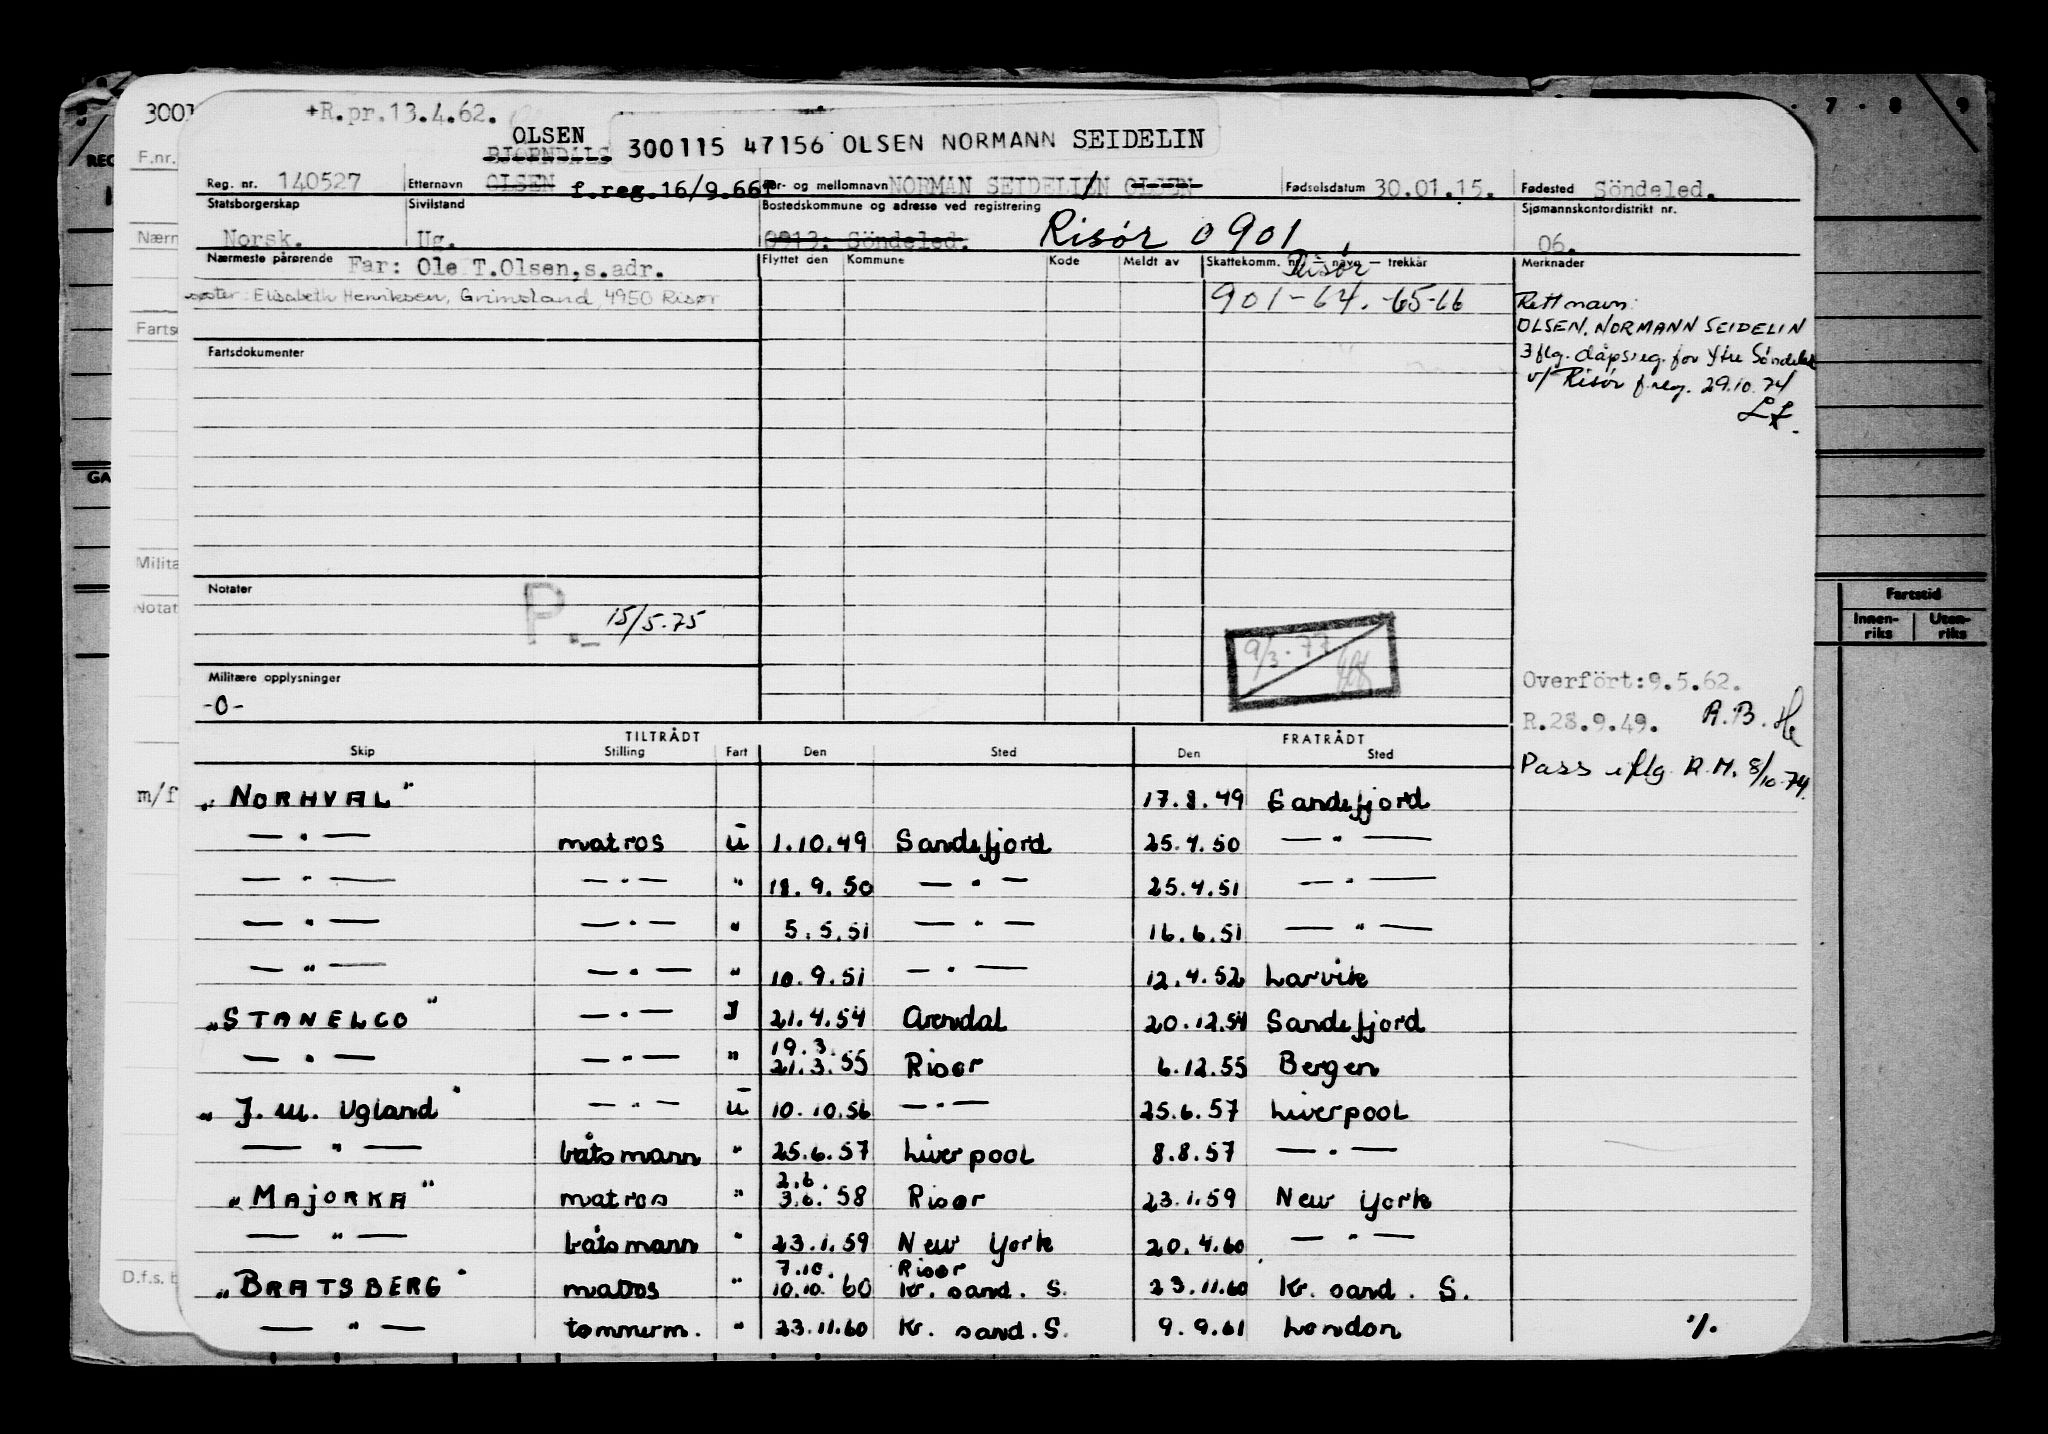 +R.pr.13.4.62.
3001
OLSEN
300115 47156 OLSEN NORMANN SEIDELIN
F.nr.
Reg. nr. 140527 Etternavn OLSEN f.reg.16/9.66 For- og mellomnavn NORMAN SEIDELIEN OLSEN Fødselsdatum 30.01.15. Fødested Söndeled.
Statsborgerskap Sivilstand Bostedskommune og adresse ved registrering Sjømannskontordistrikt nr.
Norsk. Ug. 0913: Söndeled. Risör 0901 06.
Nærmeste pårørende Far: Ole T.Olsen, s.adr. Flyttet den Kommune Kode Meldt av Skattekomm. nr. – navn – trekkår Merknader
Risør
søster: Elisabeth Henriksen, Grimsland, 4950 Risør 901-64.-65-66
Rett navn:
OLSEN, NORMANN SEIDELIN
Fartsdokumenter
iflg. dåpsreg. for Ytre Söndeled
v/ Risör f.reg. 29.10.74
Notater
P. 15/5.75
9/3.77
Fartstid
Innen-riks Uten-riks
Militære opplysninger
-0-
Overfört:9.5.62.
R.28.9.49. A.B. He
Pass iflg. A.M. 8/10.74.
TILTRÅDT FRATRÅDT
Skip Stilling Fart Den Sted Den Sted
„NORHVAL" 17.8.49 Sandefjord
— " — matros U 1.10.49 Sandefjord 25.4.50 — " —
— " — — " — " 18.9.50 — " — 25.4.51 — " —
— " — — " — " 5.5.51 — " — 16.6.51 — " —
— " — — " — " 10.9.51 — " — 12.4.52 Larvik
„STANELCO" — " — I 21.4.54 Arendal 20.12.54 Sandefjord
19.3.
— " — — " — " 21.3.55 Risør 6.12.55 Bergen
„J. M. Ugland" — " — U 10.10.56 — " — 25.6.57 Liverpool
— " — båtsmann " 25.6.57 Liverpool 8.8.57 — " —
2.6.
„MAJORKA" matros " 3.6.58 Risør 23.1.59 New York
— " — båtsmann " 23.1.59 New York 20.4.60 — " —
7.10. Risør
„BRATSBERG" matros " 10.10.60 Kr. sand. S. 23.11.60 Kr. sand. S.
— " — tømmerm. " 23.11.60 Kr. sand. S. 9.9.61 London
·/.